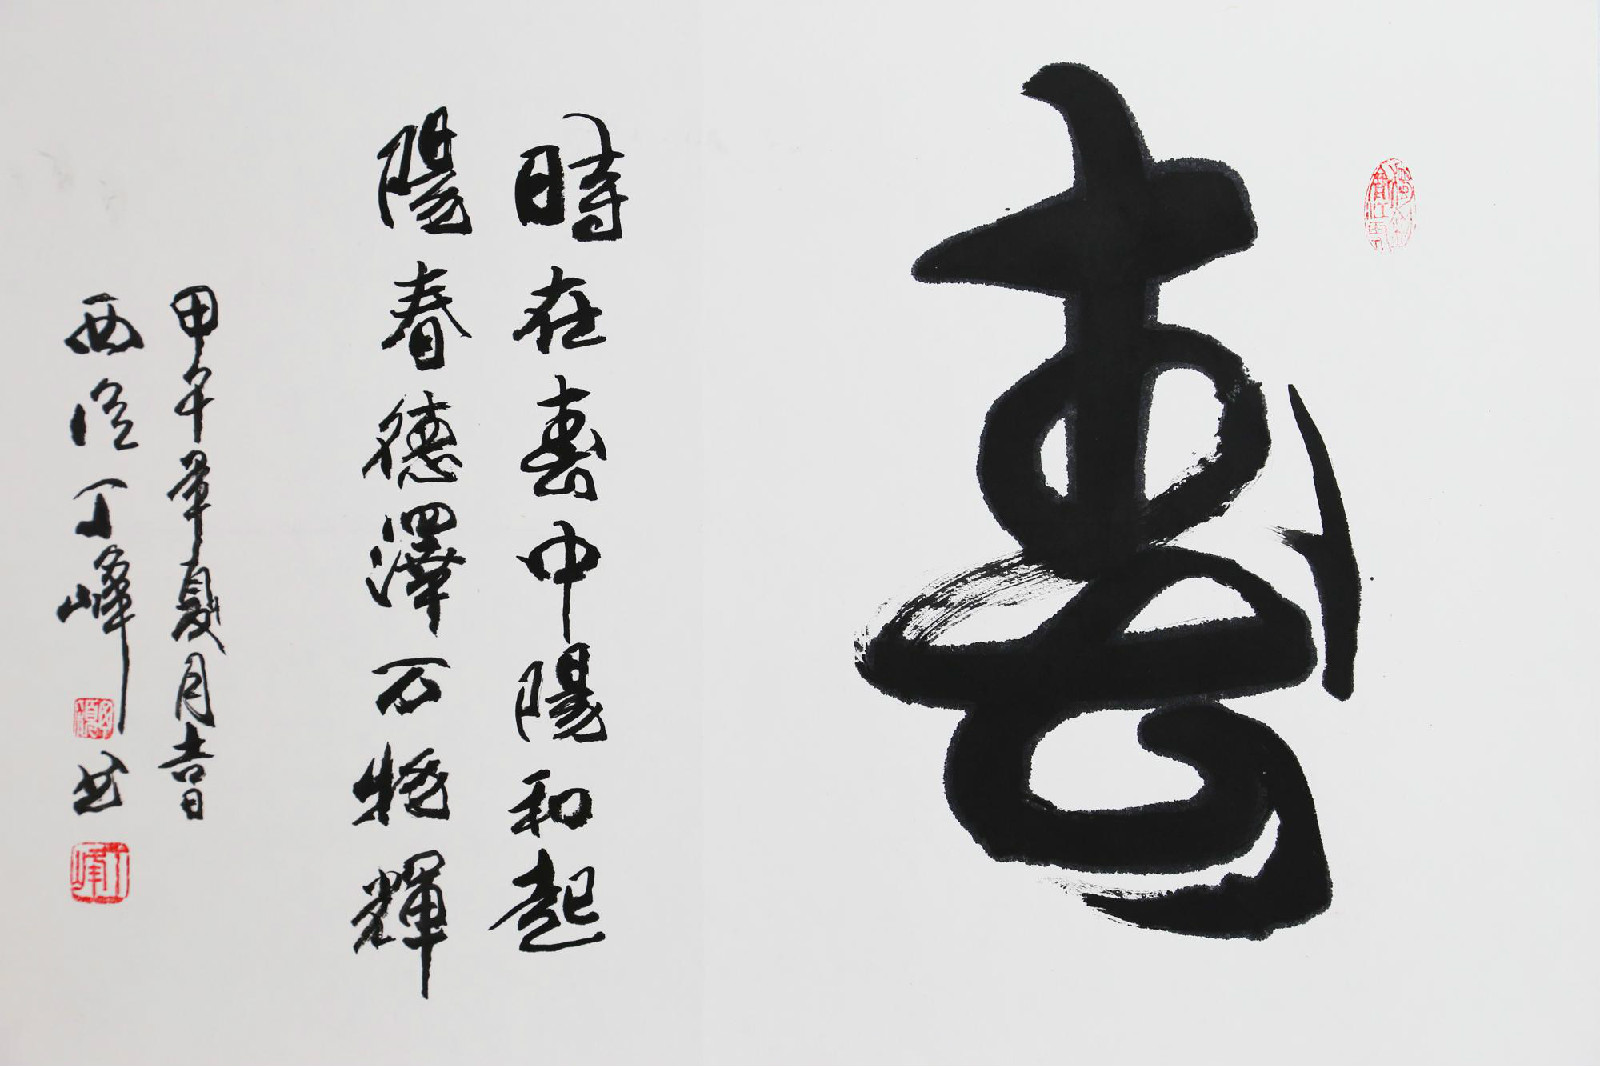 春
時在春中陽和起
陽春德澤万物輝
甲午年夏月吉日
西泠丁峰書
丁峰